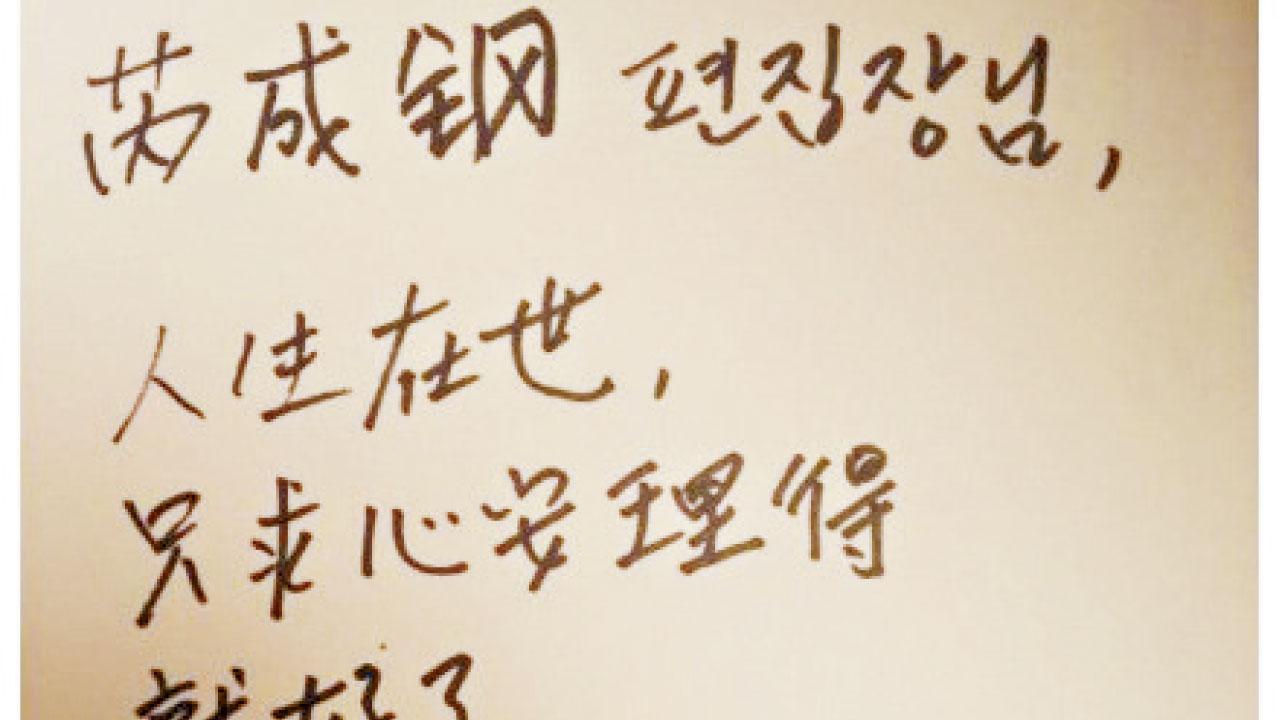 芮成钢 편집장님,
人生在世,
只求心安理得
就好了